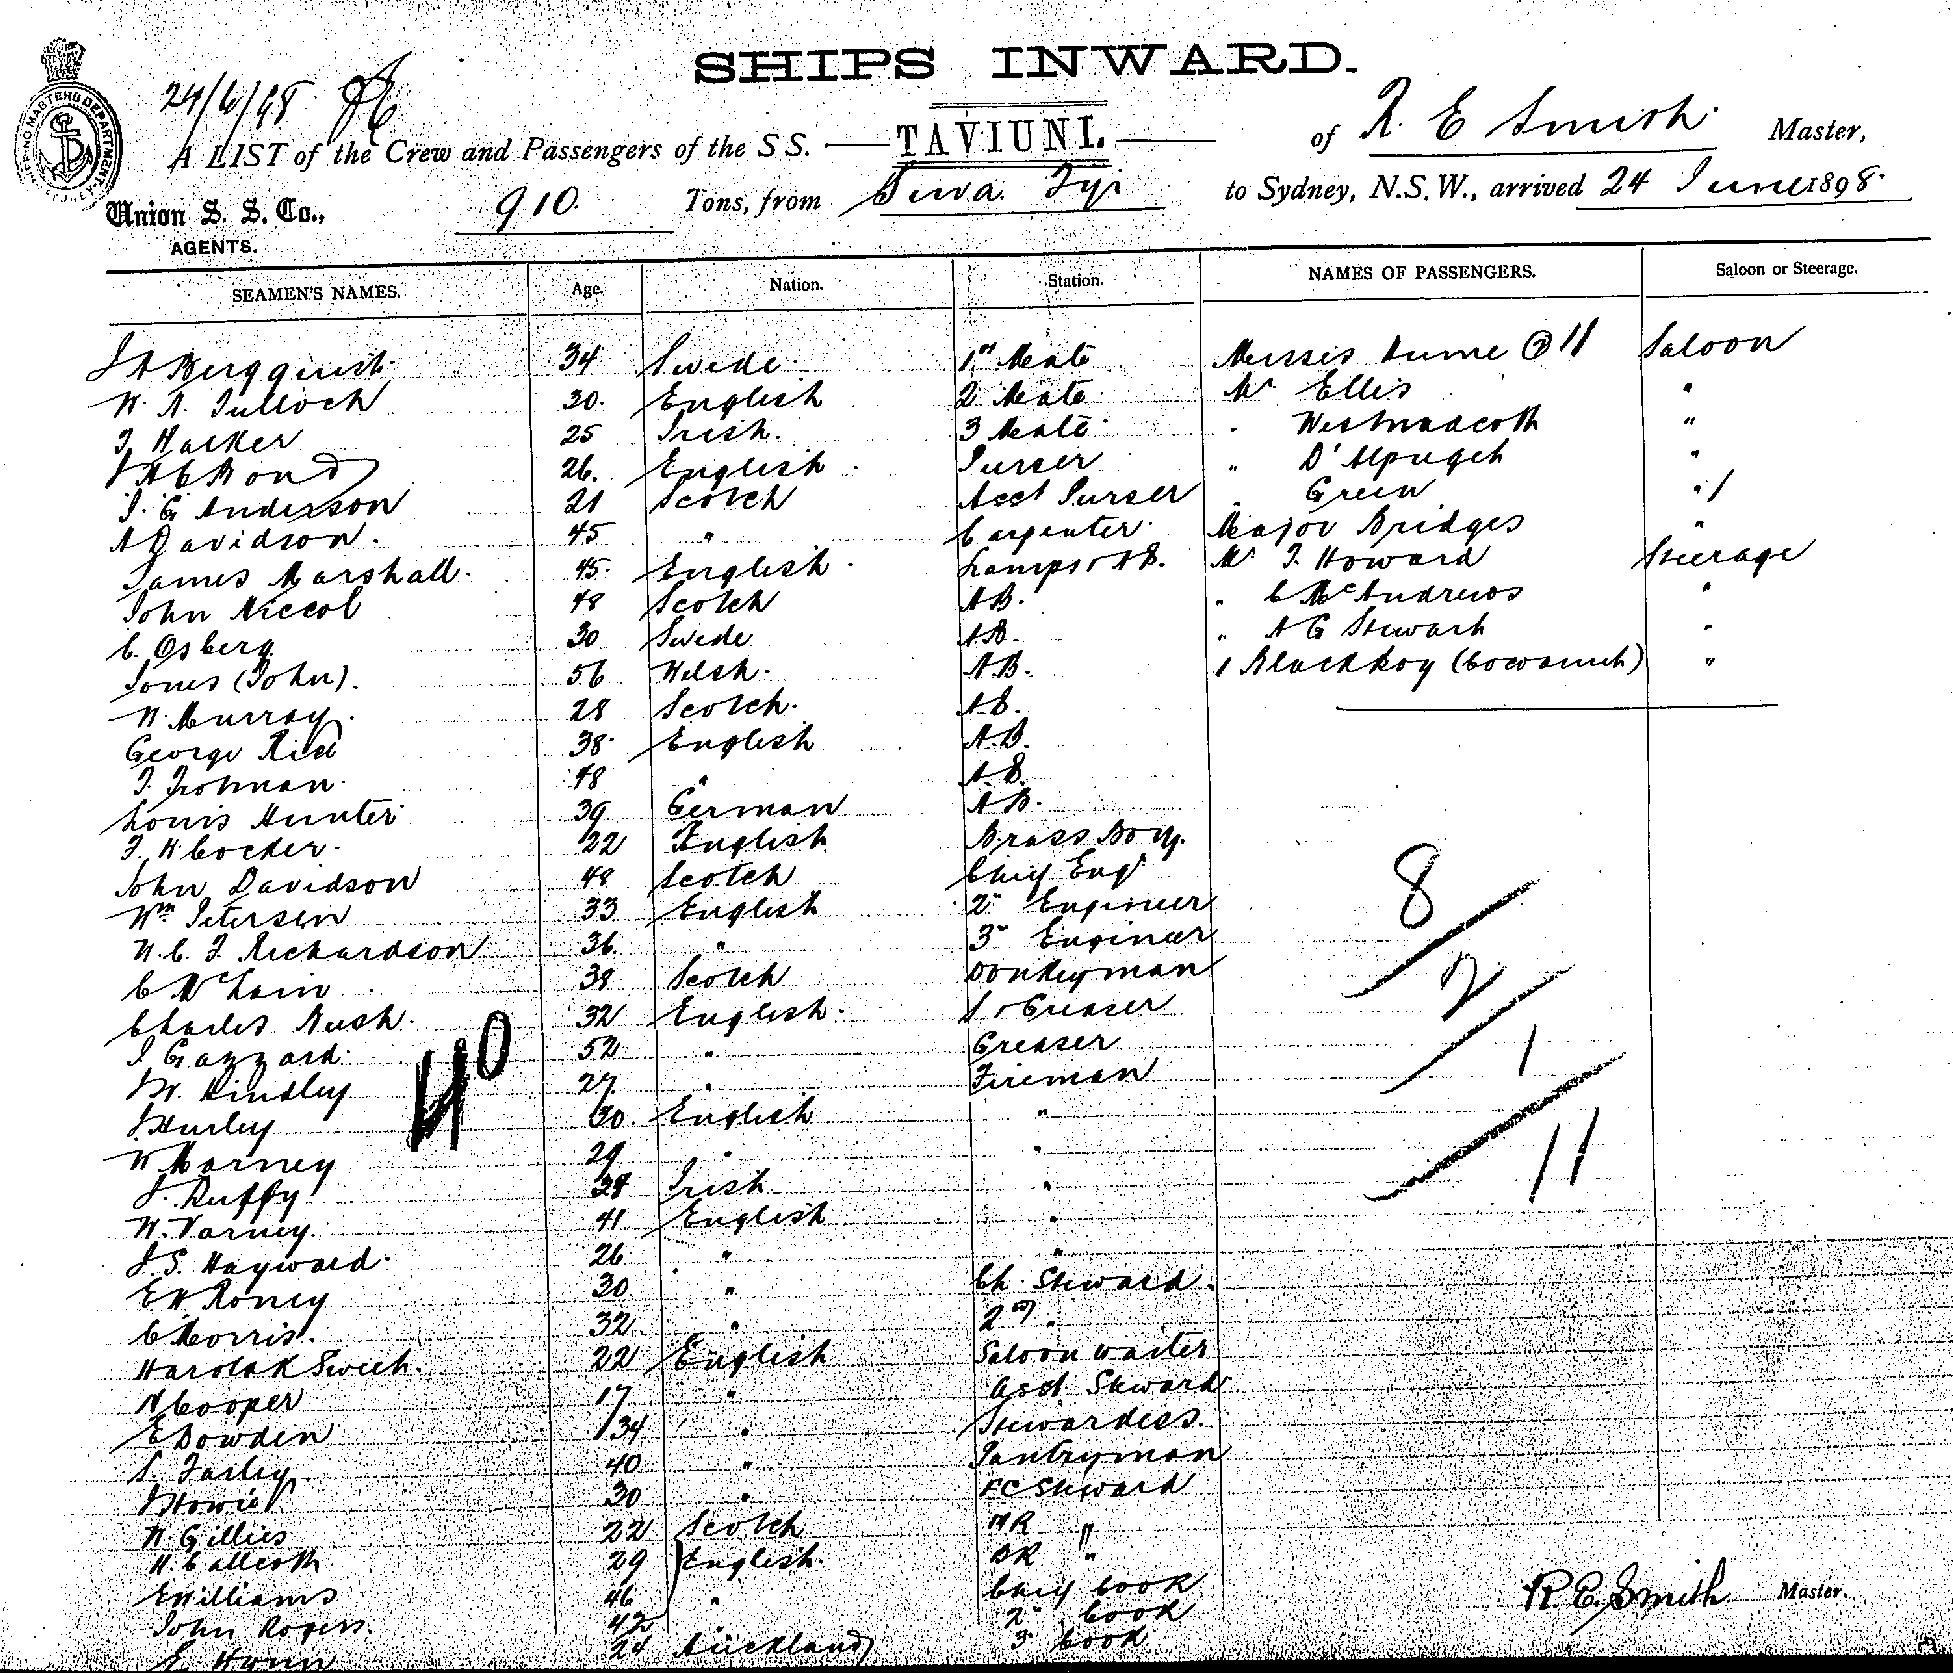 SHIPS INWARD.
24/6/98
A LIST of the Crew and Passengers of the S S. TAVIUNI. of R. E Smith Master,
Union S. S. Co., AGENTS. 910 Tons, from Suva Fiji to Sydney, N.S.W., arrived 24 June 1898.
SEAMEN'S NAMES. Age. Nation. Station. NAMES OF PASSENGERS. Saloon or Steerage.
J A Bergquist 34 Swede 1st Mate Misses Hume @ 11 Saloon
W. A. Tulloch 30 English 2 Mate Mr Ellis "
J Harker 25 Irish 3 Mate " "
English Purser " D'Alpuget "
J. G Anderson 21 Scotch Asst Purser " Green "
A Davidson 45 " Carpenter Major Bridges "
James Marshall 45 English Lamps & AB. Mr J. Howard Steerage
John Niccol 48 Scotch AB. " C McAndrews "
C. Osberg 30 Swede AB " A G Stewart "
Jones (John). 56 Welsh AB. 1 Black Boy "
W. Murray. 28 Scotch AB.
George Rice 38 English A.B.
48 " A.B.
Louis Hunter 39 German AB.
J. H Cocker 22 English Brass Boy.
John Davidson 48 Scotch Chief Engr
Wm Petersen 33 English 2nd Engineer
W. C. F. Richardson 36 " 3rd Engineer
C McLain 38 Scotch Donkeyman
Charles Rush 32 English Greaser
J Gazzard 52 " Greaser
Hindley 27 " Fireman
J Hurley 30 English "
W Marney 29 " "
J. Duffy Irish "
W. Varney 41 English "
J. S. Hayward 26 " "
E W Roney 30 " Ch. Steward
C Morris. 32 " 2nd "
Harold K Sweet. 22 English Saloon waiter
Cooper 17 " asst Steward
E Bowden 34 " Stewardess
Farley 40 " Pantryman
J Howie 30 " FC Steward
W Gillies 22 Scotch "
29 English BR "
E Williams 46 " Chief Cook
John Rogers. 42 2nd Cook
24 Auckland 3 Cook
40
8
2
1
11
R. E. Smith Master.